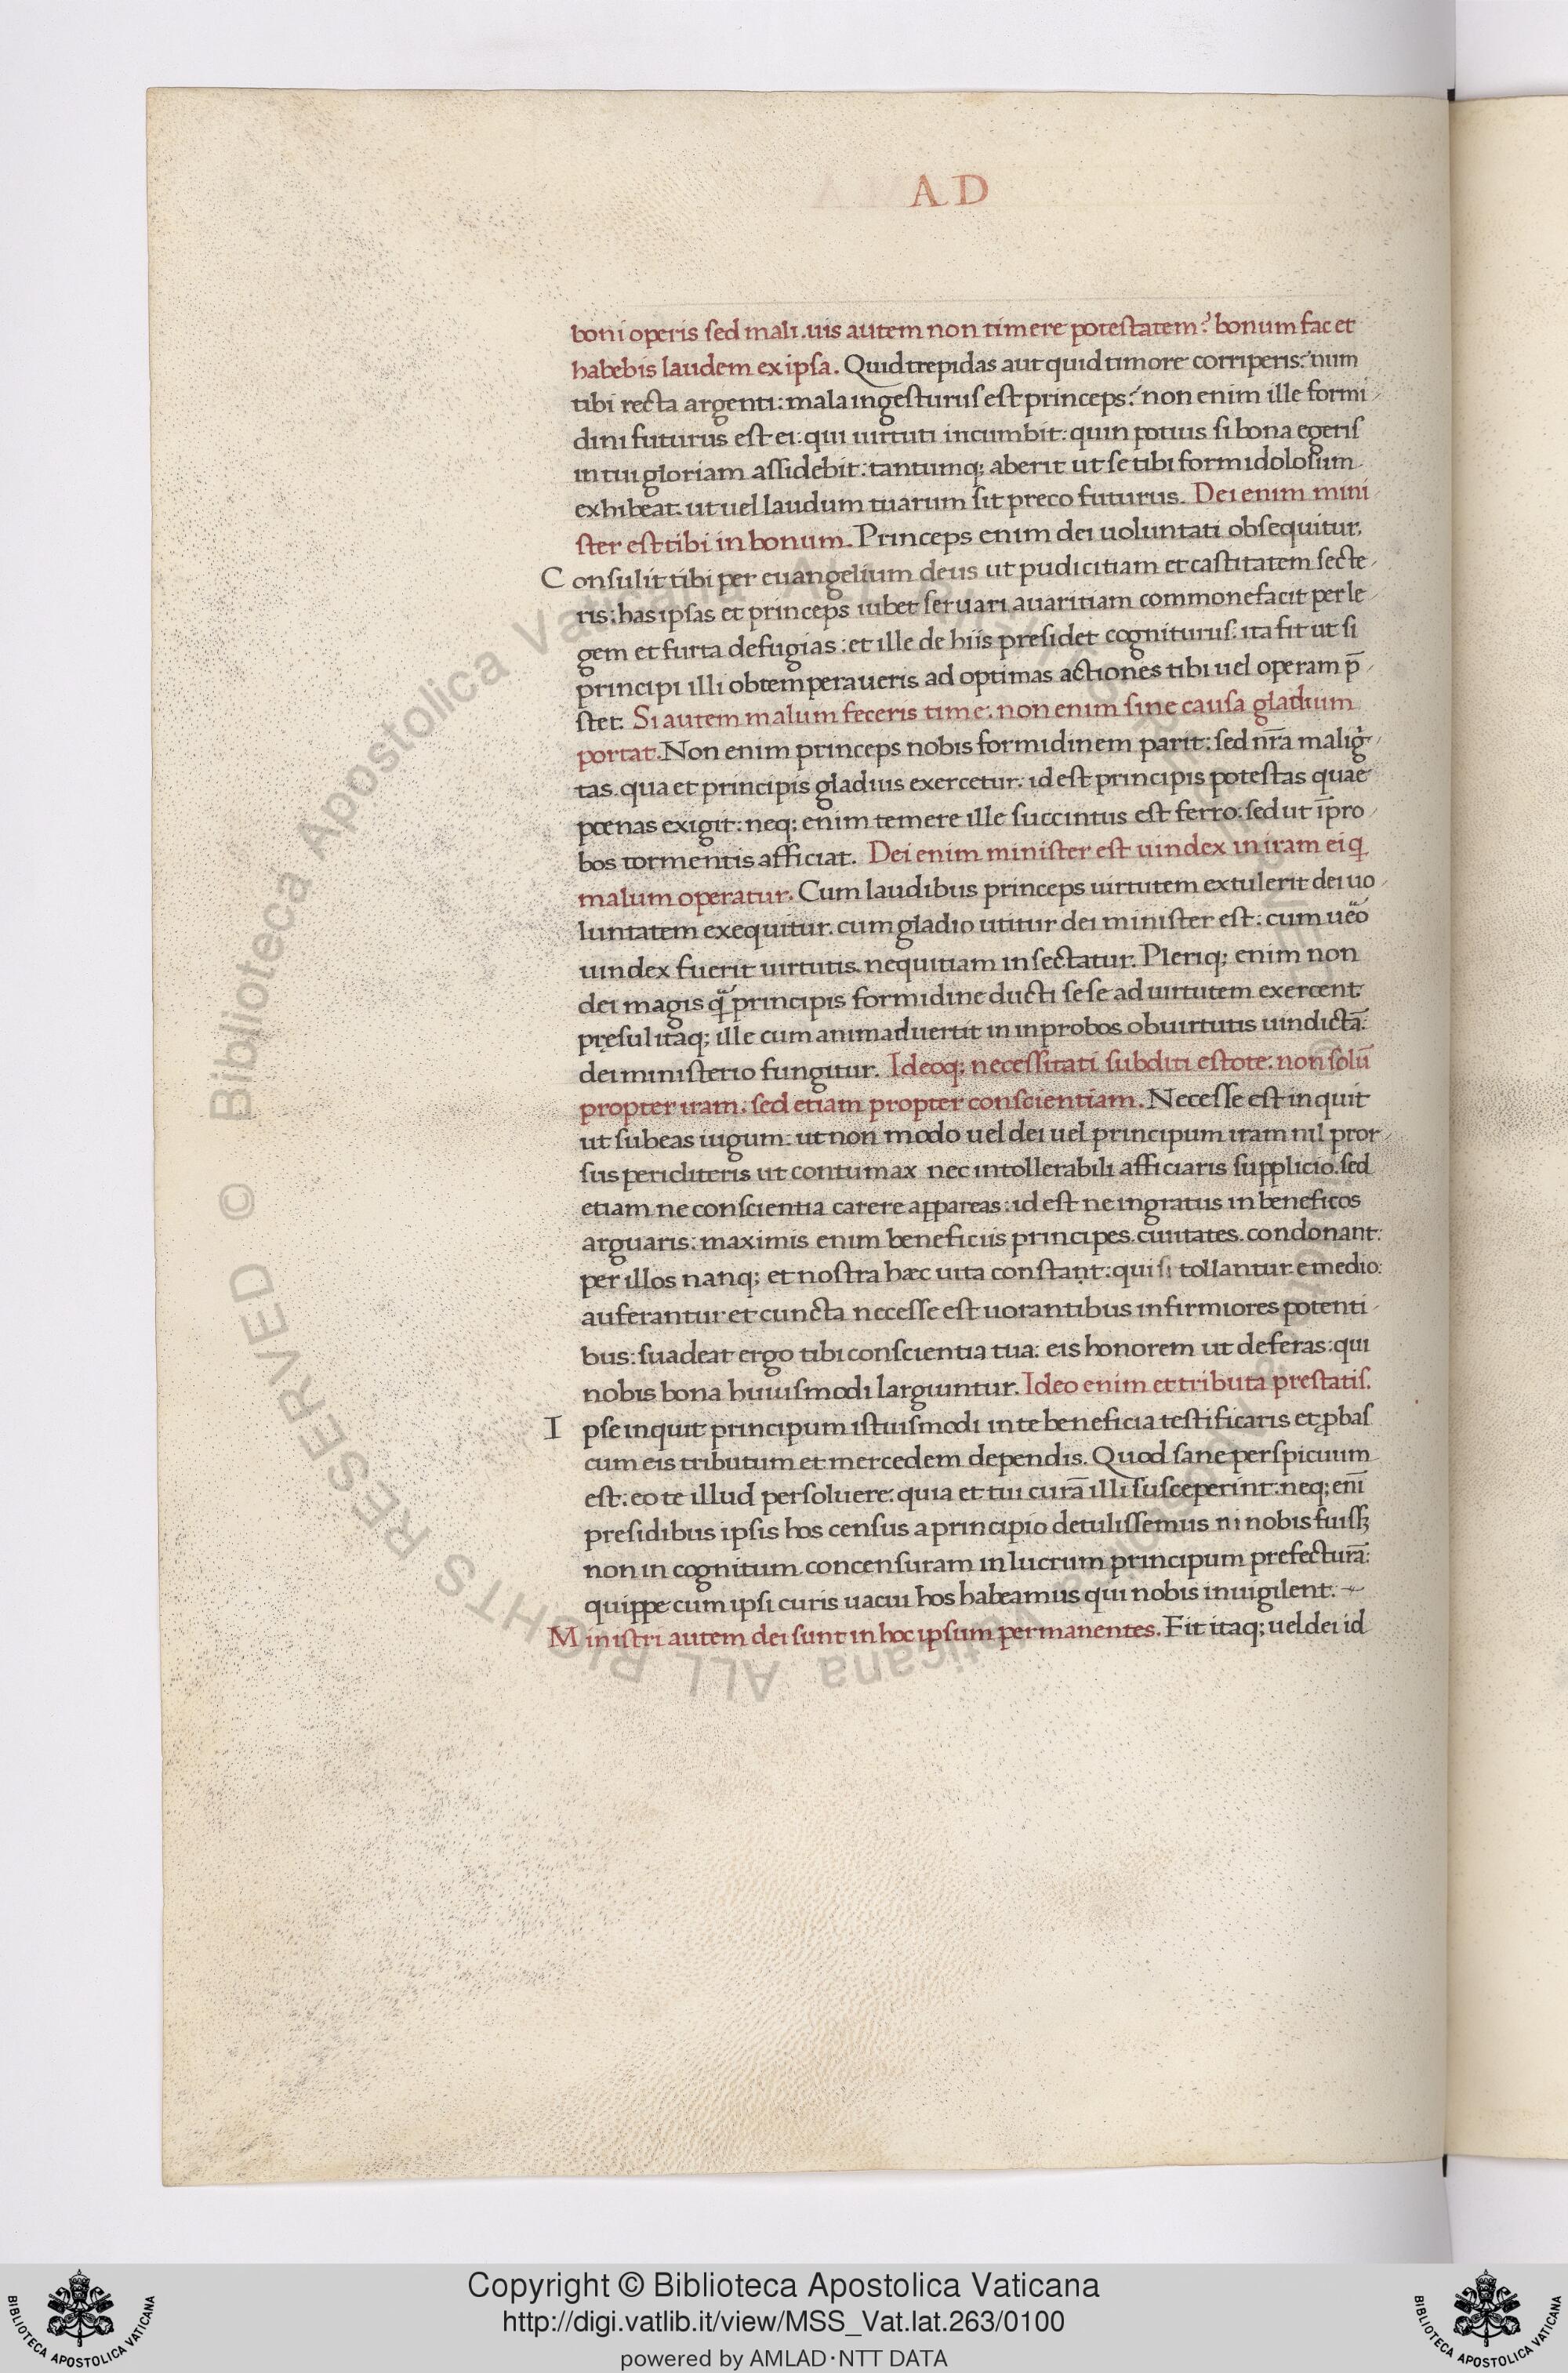 A D
boni operis sed mali. uis autem non timere potestatem? bonum fac et
habebis laudem ex ipsa. Quid trepidas aut quid timore corriperis? num
tibi recta argenti: mala ingesturus est princeps? non enim ille formi-
dini futurus est ei: qui uirtuti incumbit: quin potius si bona egeris
in tui gloriam assidebit: tantumq; aberit ut se tibi formidolosum
exhibeat. ut uel laudum tuarum sit preco futurus. Dei enim mini
ster est tibi in bonum. Princeps enim dei uoluntati obsequitur.
Consulit tibi per euangelium deus ut pudicitiam et castitatem secte-
ris: has ipsas et princeps iubet seruari auaritiam commonefacit per le-
gem et furta defugias: et ille de hiis presidet cogniturus. ita fit ut si
principi illi obtemperaueris ad optimas actiones tibi uel operam p̄-
stet. Si autem malum feceris time: non enim sine causa gladium
portat. Non enim princeps nobis formidinem parit: sed nr̄a malig-
tas. qua et principis gladius exercetur. id est principis potestas quae
pœnas exigit: neq; enim temere ille succintus est ferro. sed ut īpro-
bos tormentis afficiat. Dei enim minister est uindex in iram ei q
malum operatur. Cum laudibus princeps uirtutem extulerit dei uo-
luntatem exequitur. cum gladio utitur dei minister est: cum ueo
uindex fuerit uirtutis. nequitiam insectatur. Pleriq; enim non
dei magis q principis formidine ducti sese ad uirtutem exercent.
pręsul itaq; ille cum animaduertit in inprobos ob uirtutis uindictā.
dei ministerio fungitur. Ideoq; necessitati subditi estote. non solū
propter iram. sed etiam propter conscientiam. Necesse est inquit
ut subeas iugum. ut non modo uel dei uel principum iram nil pror-
sus pericliteris ut contumax nec intollerabili afficiaris supplicio. sed
etiam ne conscientia carere appareas: id est ne ingratus in beneficos
arguaris: maximis enim beneficiis principes. ciuitates. condonant:
per illos nanq; et nostra hæc uita constant: qui si tollantur e medio:
auferantur et cuncta necesse est uorantibus infirmiores potenti-
bus: suadeat ergo tibi conscientia tua: eis honorem ut deferas: qui
nobis bona huiusmodi larguntur. Ideo enim et tributa prestatis.
Ipse inquit principum istiusmodi in te beneficia testificaris et ꝓbas
cum eis tributum et mercedem dependis. Quod sane perspicuum
est. eo te illud persoluere: quia et tui curā illi susceperint: neq; enī
presidibus ipsis hos census a principio detulissemus ni nobis fuissꝫ
non incognitum concensuram in lucrum principum prefecturā:
quippe cum ipsi curis uacui hos habeamus qui nobis inuigilent.
Ministri autem dei sunt in hoc ipsum permanentes. Fit itaq; uel dei id
© Biblioteca Apostolica Vaticana ALL RIGHTS RESERVED
Copyright © Biblioteca Apostolica Vaticana
http://digi.vatlib.it/view/MSS_Vat.lat.263/0100
powered by AMLAD·NTT DATA
BIBLIOTECA APOSTOLICA VATICANA
BIBLIOTECA APOSTOLICA VATICANA